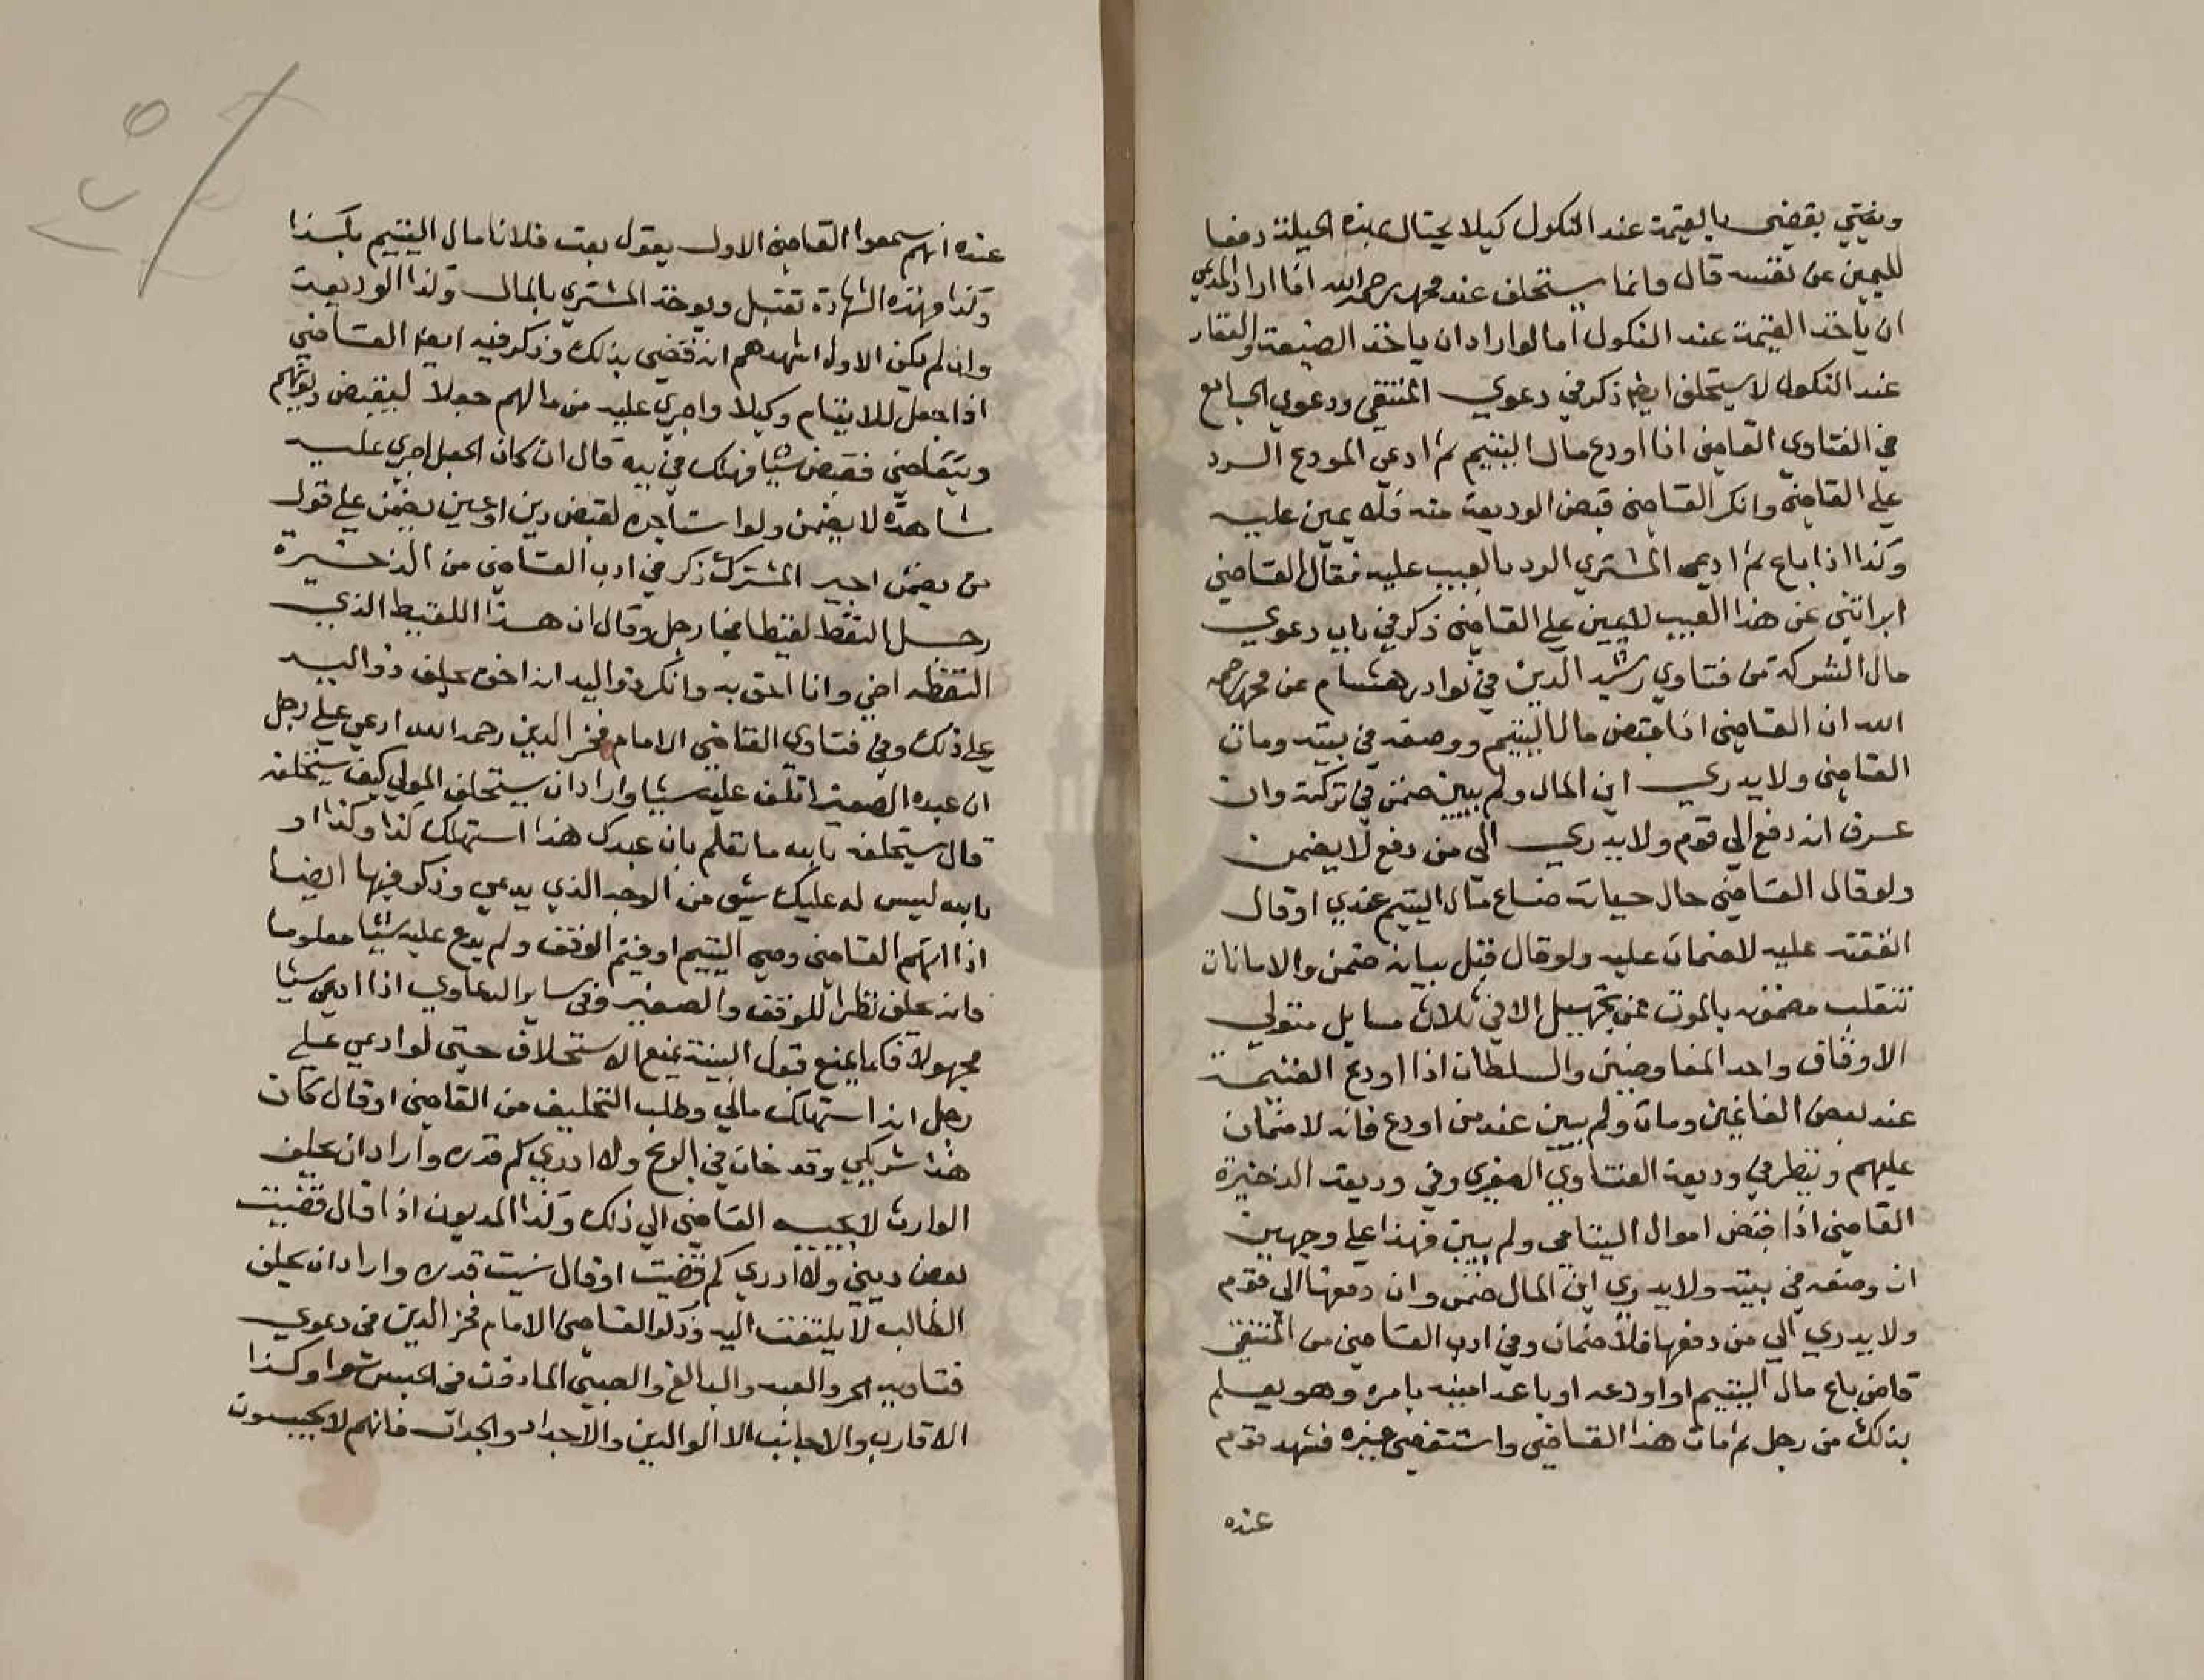 ويفتي يقضى بالقيمة عند النكول كيلا يحتال بهذه الحيلة دفعا
لليمين عن نفسه قال وانما يستحلف عند محمد رحمه الله اذا اراد المدعي
ان ياخذ القيمة عند النكول اما لو اراد ان ياخذ الضيعة والعقار
عند النكول لا يستحلف ايضا ذكر في دعوي المنتقى ودعوي الجامع
في الفتاوى القاضى اذا اودع مال اليتيم ثم ادعى المودع الرد
علي القاضى وانكر القاضى قبض الوديعة منه فلا يمين عليه
وكذا اذا باع ثم ادعى المشتري الرد بالعيب عليه فقال القاضي
ابراتني عن هذا العيب لا يمين علي القاضى ذكر في باب دعوي
مال الشركة من فتاوي رشيد الدين في نوادر هشام عن محمد رحمه
الله ان القاضى اذا قبض مال اليتيم ووضعه في بيته ومات
القاضى ولا يدري اين المال ولم يبين ضمن في تركته وان
عرف انه دفع الي قوم ولا يدري الي من دفع لا يضمن
ولو قال القاضى حال حياته ضاع مال اليتيم عندي او قال
انفقته عليه لا ضمان عليه ولو قال قبل بيانه ضمن والامانات
تنقلب مضمونه بالموت عن تجهيل الا في ثلاث مسايل متولي
الاوقاف واحد المفاوضين والسلطان اذا اودع الغنيمة
عند بعض الغانمين ومات ولم يبين عند من اودع فانه لا ضمان
عليهم وينظر في وديعة الفتاوي الصغري وفي وديعة الذخيرة
القاضى اذا قبض اموال اليتامى ولم يبين فهذا علي وجهين
ان وضعه في بيته ولا يدري اين المال ضمن وان دفعها الي قوم
ولا يدري الي من دفعها فلا ضمان وفي ادب القاضى من المنتقى
قاض باع مال اليتيم او اودعه او باعه امينه بامره وهو يعلم
بذلك من رجل ثم مات هذا القاضى واستقضى غيره فشهد قوم
عنده
عنده انهم سمعوا القاضي الاول يقول بعت فلانا مال اليتيم بكذا
وكذا فهذه الشهادة تقبل ويوخذ المشتري بالمال وكذا الوديعة
وان لم يكن الاول اشهدهم انه قضى بذلك وذكر فيه ايضا القاضي
اذا جعل للايتام وكيلا واجري عليه من مالهم جعلا ليقبض ديونهم
ويتقاضي فقبض شيا فهلك في يده قال ان كان الجعل اجري عليه
مشاهدة لا يضمن ولو استاجره لقبض دين او عين يضمن علي قول
من يضمن اجير المشترك ذكر في ادب القاضي من الذخيرة
رجل التقط لقيطا فجا رجل وقال ان هذا اللقيط الذي
التقطه اخي وانا احق به وانكر ذو اليد انه اخوه يحلف ذو اليد
علي ذلك وفي فتاوي القاضي الامام فخر الدين رحمه الله ادعي علي رجل
ان عبده الصغير اتلف عليه شيا واراد ان يستحلف المولي كيف يستحلفه
قال يستحلفه بالله ما تعلم بان عبدك هذا استهلك كذا وكذا او
بالله ليس له عليك شي من الوجه الذي يدعي وذكر فيها ايضا
اذا اتهم القاضي وصي اليتيم او قيم الوقف ولم يدع عليه شيا معلوما
فانه يحلف نظرا للوقف والصغير وفي ساير الدعاوي اذا ادعي شيا
مجهولا فكما يمنع قبول البينة يمنع الاستحلاف حتى لو ادعي علي
رجل انه استهلك مالي وطلب التحليف من القاضي او قال كان
هذا شريكي وقد خان في الربح ولا ادري كم قدره واراد ان يحلف
الوارث لا يجيبه القاضي الي ذلك وكذا المديون اذا قال قضيت
بعض ديني ولا ادري كم قضيت او قال نسيت قدره واراد ان يحلف
الطالب لا يلتفت اليه وذكر القاضي الامام فخر الدين في دعوي
فتاويه الحر والعبد والبالغ والصبي الماذون في الحبس سوا وكذا
الاقارب والاجانب الا الوالدين والاجداد والجدات فانهم لا يحبسون